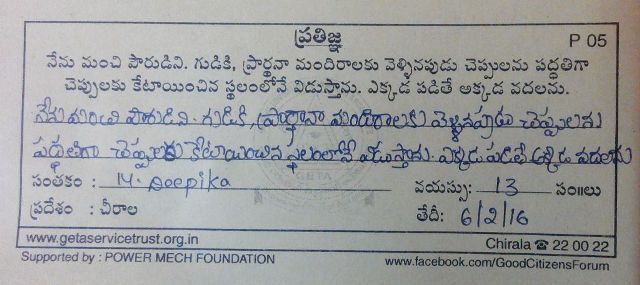 ప్రతిజ్ఞ
P 05
నేను మంచి పౌరుడిని. గుడికి, ప్రార్థనా మందిరాలకు వెళ్ళినపుడు చెప్పులను పద్ధతిగా
చెప్పులకు కేటాయించిన స్థలంలోనే విడుస్తాను. ఎక్కడ పడితే అక్కడ వదలను.
నేను మంచి పౌరుడిని. గుడికి, ప్రార్థానా మందిరాలకు వెళ్ళినపుడు చెప్పులను
పద్ధతిగా చెప్పులకు కేటాయించిన స్థలంలోనే విడుస్తాను. ఎక్కడ పడితే అక్కడ వదలను
సంతకం : M. Deepika వయస్సు: 13 సం॥లు
ప్రదేశం : చీరాల తేదీ: 6/2/16
GETA
www.getaservicetrust.org.in Chirala ☎ 22 00 22
Supported by : POWER MECH FOUNDATION www.facebook.com/GoodCitizensForum